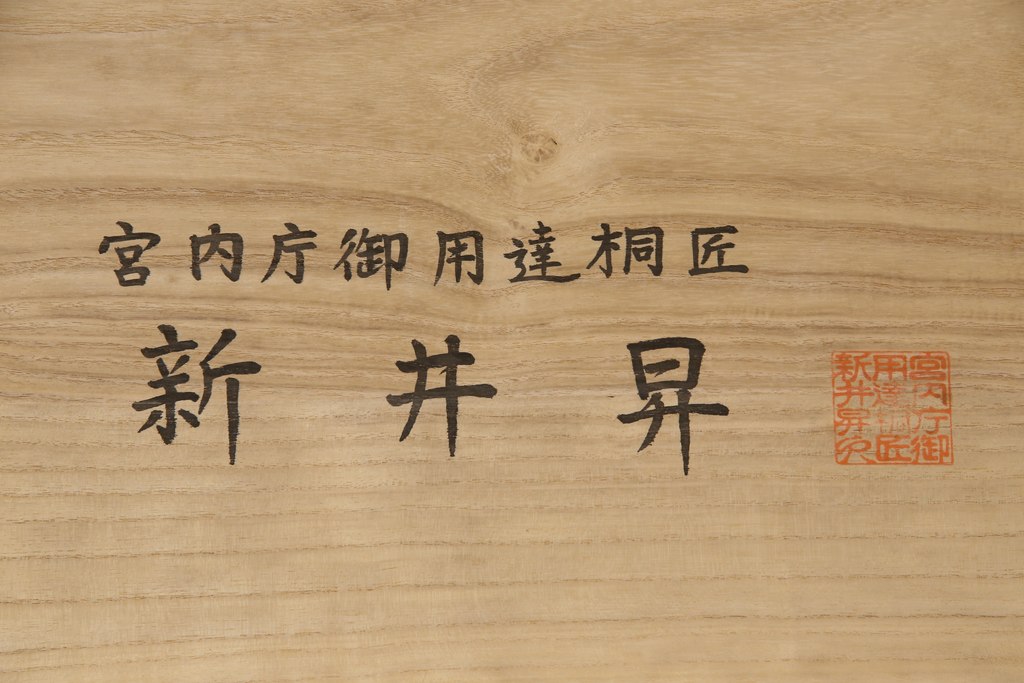 宮内庁御用達桐匠
新井昇
宮内庁御
用達桐匠
新井昇